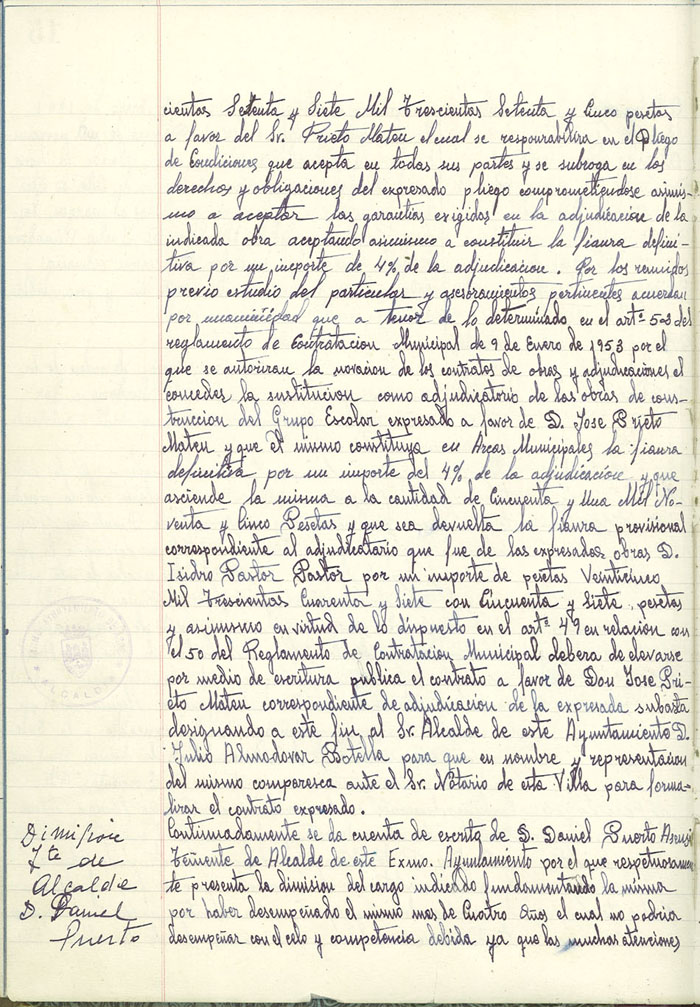 cientas Setenta y Siete Mil Trescientas Setenta y Cinco pesetas
a favor del Sr. Prieto Mateu el cual se responsabiliza en el Pliego
de Condiciones que acepta en todas sus partes y se subroga en los
derechos y obligaciones del expresado pliego comprometiendose asimis-
mo a aceptar las garantias exigidas en la adjudicacion de la
indicada obra aceptando asimismo a constituir la fianza defini-
tiva por un importe de 4% de la adjudicacion. Por los reunidos
previo estudio del particular y asesoramientos pertinentes acuerdan
por unanimidad que a tenor de lo determinado en el artº 503 del
reglamento de Contratacion Municipal de 9 de Enero de 1953 por el
que se autorizan la novacion de los contratos de obras y adjudicaciones el
conceder la sustitucion como adjudicatorio de las obras de cons-
truccion del Grupo Escolar expresado a favor de D. Jose Prieto
Mateu y que el mismo constituya en Arcas Municipales la fianza
definitiva por un importe del 4% de la adjudicacion y que
asciende la misma a la cantidad de Cincuenta y Una Mil No-
venta y Cinco Pesetas y que sea devuelta la fianza provisional
correspondiente al adjudicatario que fue de las expresadas obras D.
Isidro Pastor Pastor por un importe de pesetas Veinticinco
Mil Trescientas Cuarenta y Siete con Cincuenta y Siete pesetas
y asimismo en virtud de lo dispuesto en el artº 49 en relacion con
el 50 del Reglamento de Contratacion Municipal debera de elevarse
por medio de escritura publica el contrato a favor de Don Jose Pri-
eto Mateu correspondiente de adjudicacion de la expresada subasta
designando a este fin al Sr. Alcalde de este Ayuntamiento D.
Julio Almodovar Botella para que en nombre y representacion
del mismo comparesca ante el Sr. Notario de esta Villa para forma-
lizar el contrato expresado.
Dimision
Tte de
Alcalde
D. Daniel
Puerto
Continuadamente se da cuenta de escrito de D. Daniel Puerto
Teñente de Alcalde de este Exmo. Ayuntamiento por el que respetuosamen-
te presenta la dimision del cargo indicado fundamentando la misma
por haber desempeñado el mismo mas de Cuatro Años el cual no podria
desempeñar con el celo y competencia debida ya que las muchas atenciones